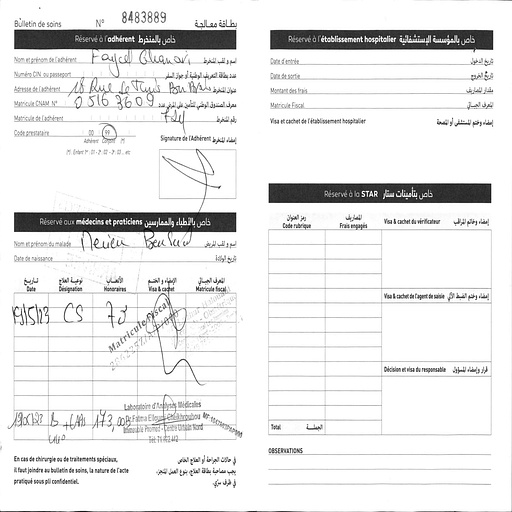 Bulletin de soins N° 8483889 بطاقة معالجة
Réservé à l'adhérent خاص بالمنخرط
Nom et prénom de l'adhérent Fayçal اسم و لقب المنخرط
Numéro CIN ou passeport عدد بطاقة التعريف الوطنية أو جواز السفر
Adresse de l'adhérent 18 Rue de Tunis عنوان المنخرط
Matricule CNAM N° 05163609 معرف الصندوق الوطني للتأمين على المرض عدد
Matricule de l'adhérent رقم المنخرط
Code prestataire 00 99 Signature de l'Adhérent إمضاء المنخرط
Adhérent Conjoint (*)
(*). Enfant 1er : 01 - 2e : 02 - 3e : 03 ... etc
Réservé aux médecins et praticiens خاص بالأطباء والممارسين
Nom et prénom du malade اسم و لقب المريض
Date de naissance تاريخ الولادة
تاريخ نوعية العلاج الأتعاب الإمضاء و الختم المعرف الجبائي
Date Désignation Honoraires Visa & cachet Matricule fiscal
19/5/23 CS 75
Matricule Fiscal
B 173,000
Laboratoire d'Analyses Médicales
Immeuble Promed - Centre Urbain Nord
En cas de chirurgie ou de traitements spéciaux,
il faut joindre au bulletin de soins, la nature de l'acte
pratiqué sous pli confidentiel.
في حالات الجراحة أو العلاج الخاص
يجب مصاحبة بطاقة العلاج، بنوع العمل المنجز،
في ظرف سري.
Réservé à l'établissement hospitalier خاص بالمؤسسة الإستشفائية
Date d'entrée تاريخ الدخول
Date de sortie تاريخ الخروج
Montant des frais مقدار المصاريف
Matricule Fiscal المعرف الجبائي
Visa et cachet de l'établissement hospitalier إمضاء وختم المستشفى أو المصحة
Réservé à la STAR خاص بتأمينات ستار
رمز العنوان المصاريف
Code rubrique Frais engagés
Visa & cachet du vérificateur إمضاء وخاتم المراقب
Visa & cachet de l'agent de saisie إمضاء وختم الضبط الآلي
Décision et visa du responsable قرار وإمضاء المسؤول
Total الجملة
OBSERVATIONS